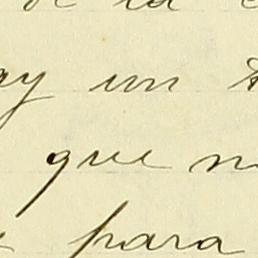 de la
ay un
que
para